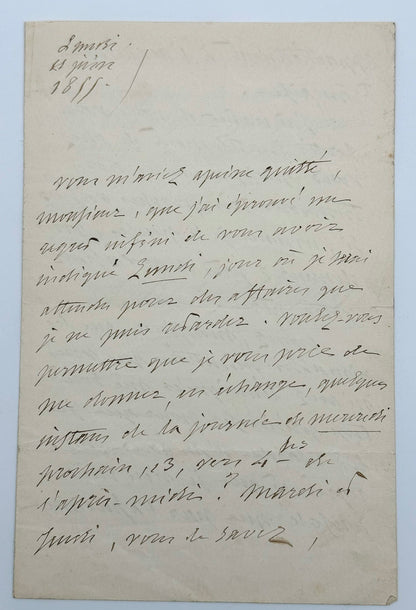 Lundi
11 juin
1855.
vous m'aviez apeine quitté,
monsieur, que j'ai éprouvé un
regret infini de vous avoir
indiqué Lundi, jour où je serai
pour des affaires que
je ne puis retarder. voulez-vous
permettre que je vous prie de
me donner, en échange, quelques
instans de la journée de mercredi
prochain, 13, vers 4 hres de
l'après-midi? Mardi et
Jeudi, vous le savez,